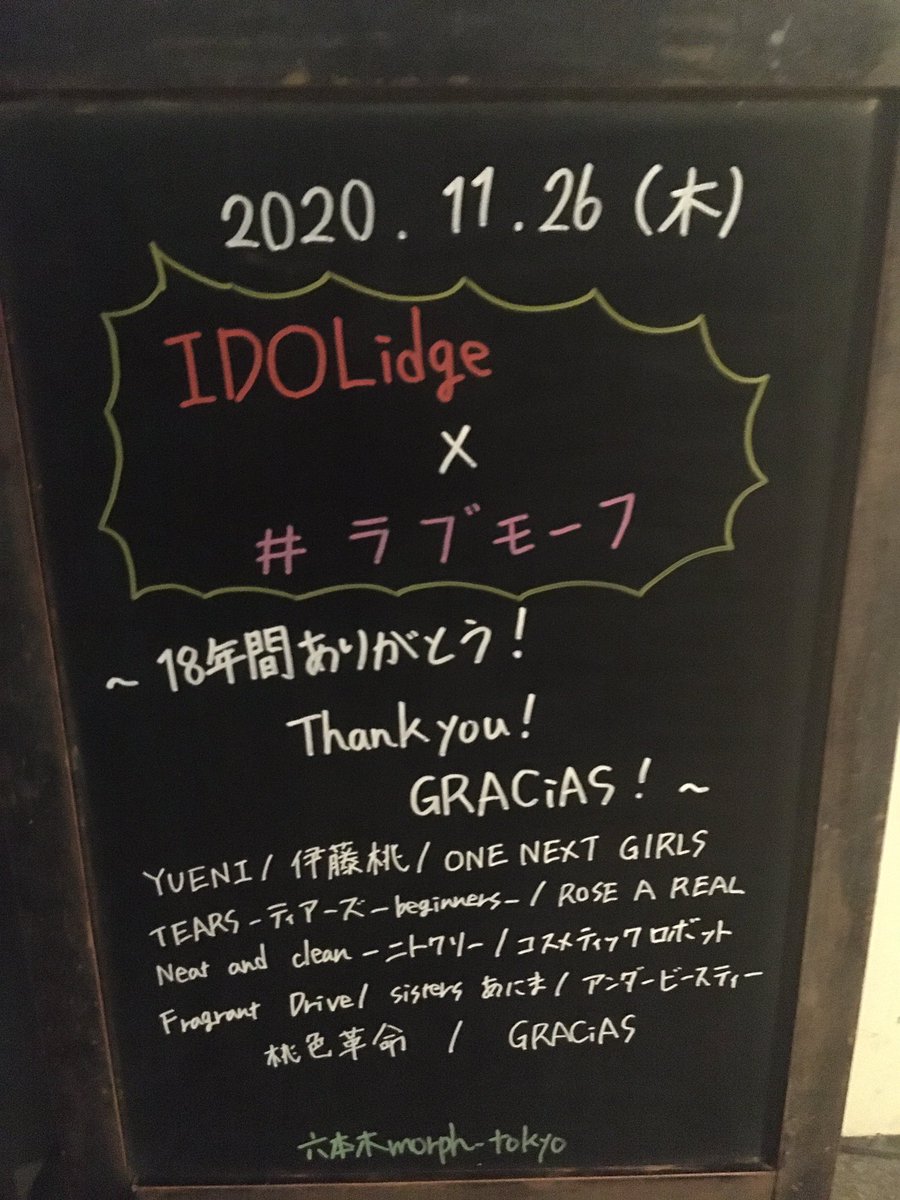 2020.11.26(木)
IDOLidge
×
#ラブモーフ
~18年間ありがとう!
Thank you!
GRACiAS!~
YUENI/伊藤桃/ONE NEXT GIRLS
TEARS-ティアーズ-beginners-/ROSE A REAL
Neat and clean-ニトクリ-/コスメティックロボット
Fragrant Drive/sistersあにま/アンダービースティー
桃色革命/GRACiAS
六本木morph-tokyo